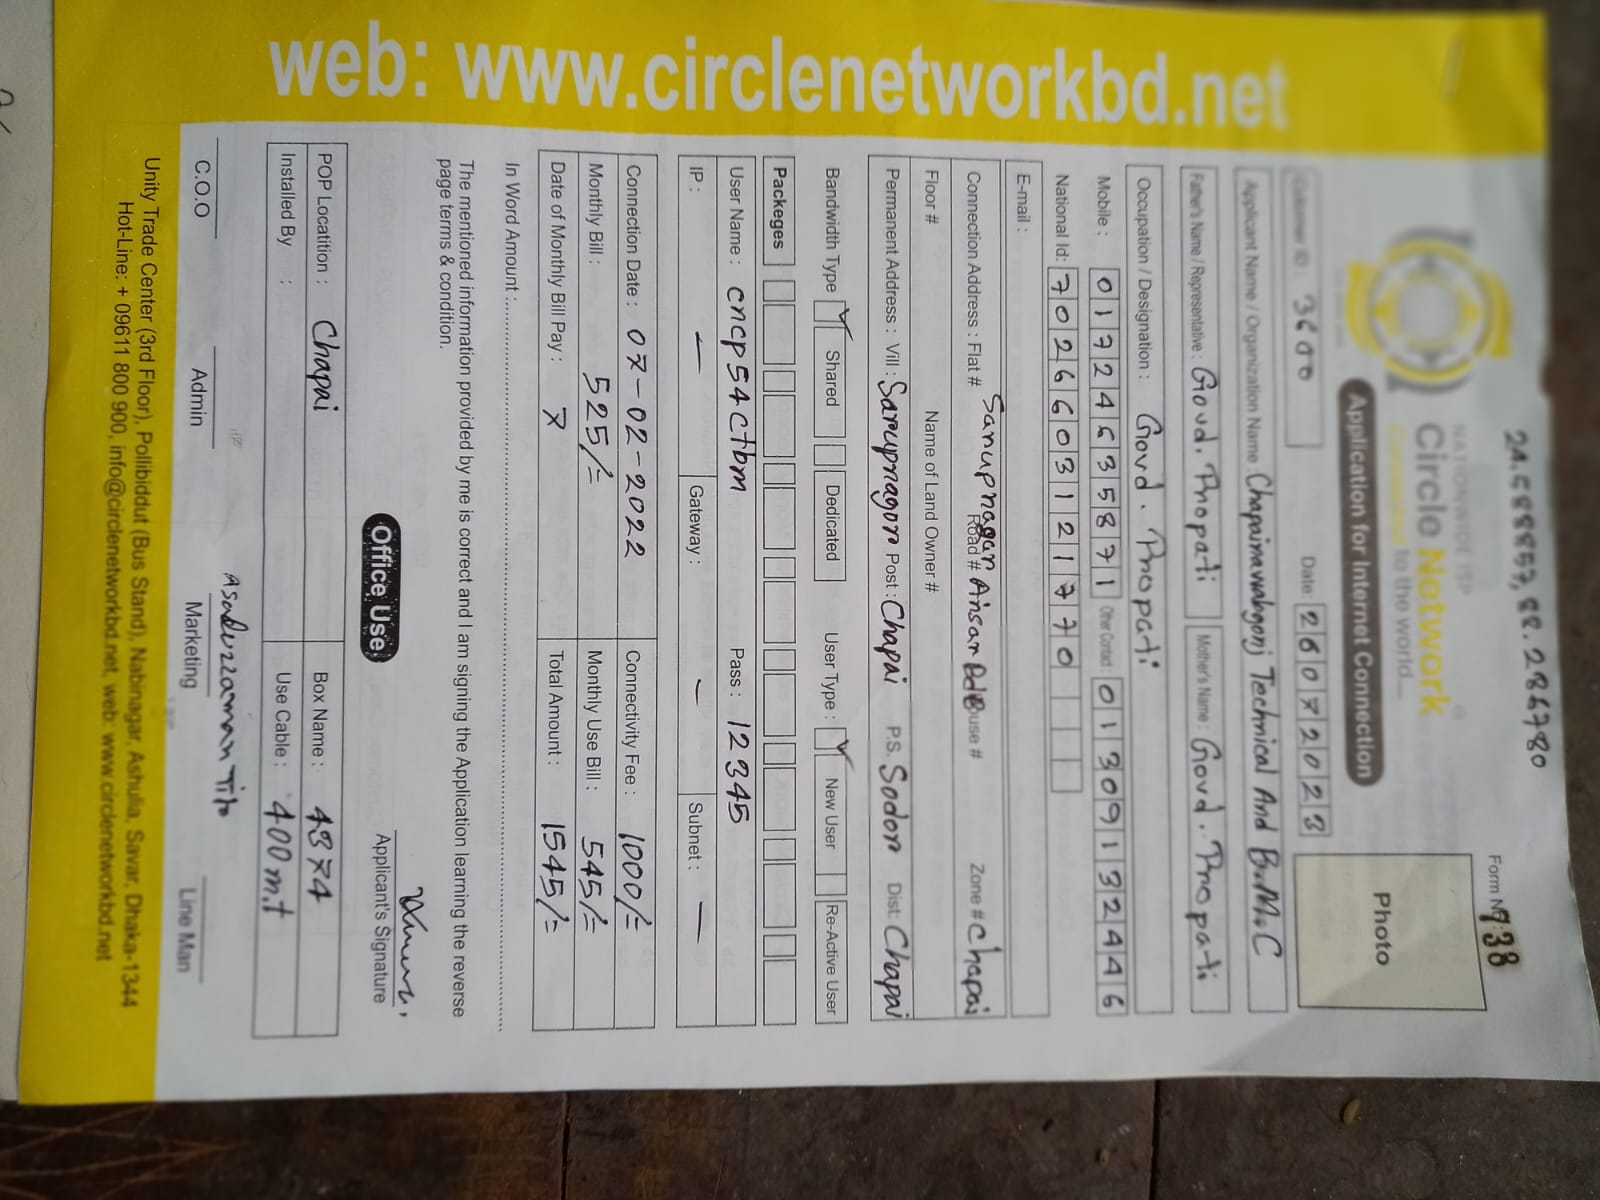 24.588857, 88.286780
Form N 738
NATIONWIDE ISP
Circle Network
Connected to the world...
Application for Internet Connection
Photo
Customer ID : 3600 Date: 26072023
Applicant Name / Organization Name : Chapainawabgonj Technical And B.M. C
Father's Name / Representative : Govd. Propati Mother's Name : Govd. Propati
Occupation / Designation : Govd. Propati
Mobile : 01724635871 Other Contact : 01309132446
National Id: 7026603121770
E-mail :
Connection Address : Flat # Sarupnagar Road # Ansar House # Zone # Chapai
Floor # Name of Land Owner #
Permanent Address : Vill : Sarupnagor Post : Chapai P.S. Sodor Dist: Chapai
Bandwidth Type Shared Dedicated User Type : New User Re-Active User
Packeges
User Name : cncp54ctbm Pass : 12345
IP : — Gateway : — Subnet : —
Connection Date : 07-02-2022 Connectivity Fee : 1000/=
Monthly Bill : 525/= Monthly Use Bill : 545/=
Date of Monthly Bill Pay : 7 Total Amount : 1545/=
In Word Amount :
The mentioned information provided by me is correct and I am signing the Application learning the reverse
page terms & condition.
Applicant's Signature
Office Use
POP Locatition : Chapai Box Name : 4374
Installed By : Use Cable : 400 m.t
Asaduzzaman Tito
C.O.O Admin Marketing Line Man
Unity Trade Center (3rd Floor), Pollibiddut (Bus Stand), Nabinagar, Ashulia, Savar, Dhaka-1344
Hot-Line: + 09611 800 900, info@circlenetworkbd.net, web: www.circlenetworkbd.net
web: www.circlenetworkbd.net